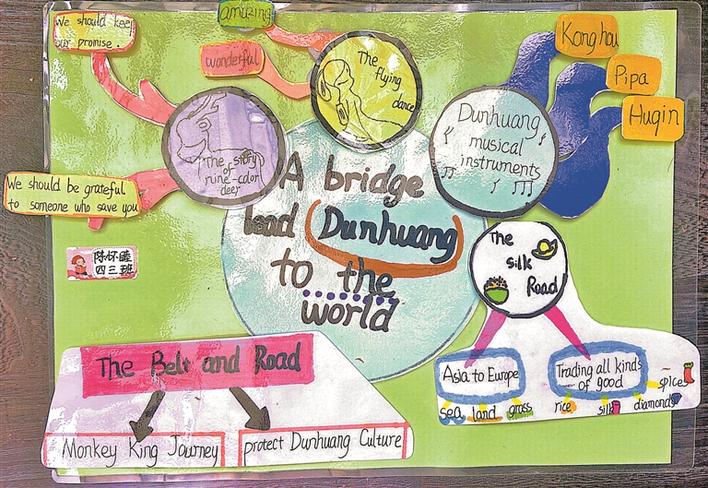 We should kee
our promise.
amazing
wonderful
The
flying
dance
Konghou
Pipa
Huqin
Dunhuang
musical
instruments
The story
of
nine-color
deer
We should be grateful
to someone who save you
A bridge
lead Dunhuang
to the
world
The
silk
Road
四三班
The Belt and Road
Monkey King Journey
protect Dunhuang Culture
Asia to Europe
sea land grass
Trading all kinds
of good
rice silk diamonds spices